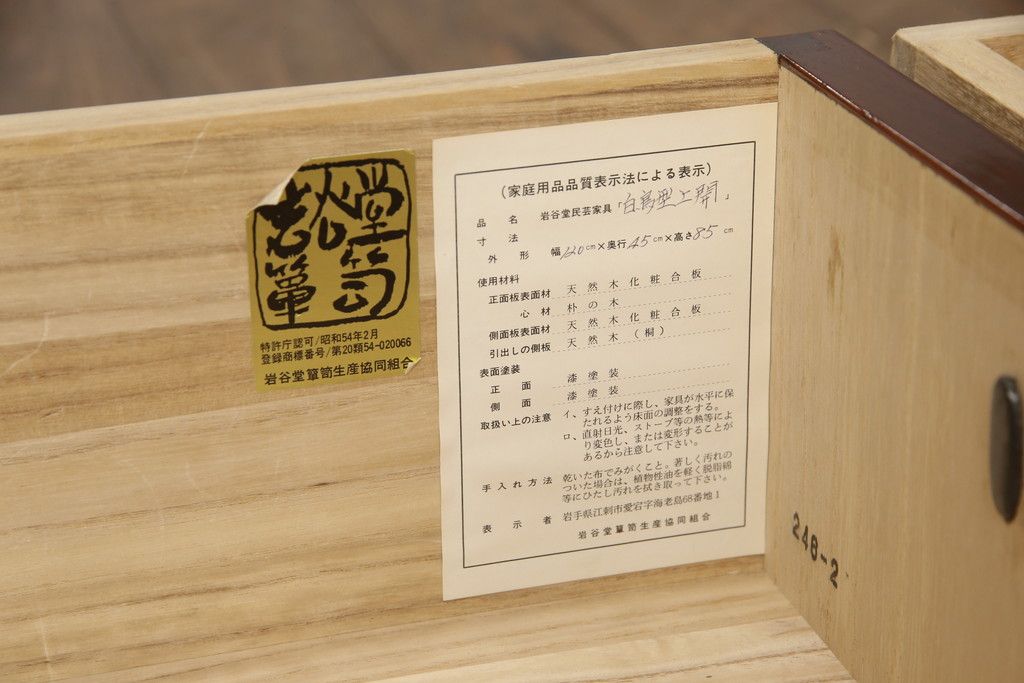 岩谷堂簞笥
特許庁認可/昭和54年2月
登録商標番号/第20類54-020066
岩谷堂簞笥生産協同組合
(家庭用品品質表示法による表示)
品 名 岩谷堂民芸家具「白鳥型上開」
寸 法
外 形 幅120cm×奥行45cm×高さ85cm
使用材料
正面板表面材 天然木化粧合板
心材 朴の木
側面板表面材 天然木化粧合板
引出しの側板 天然木(桐)
表面塗装
正 面 漆塗装
側 面 漆塗装
取扱い上の注意 イ、すえ付けに際し、家具が水平に保
たれるよう床面の調整をする。
ロ、直射日光、ストーブ等の熱等によ
り変色し、または変形することが
あるから注意して下さい。
手入れ方法 乾いた布でみがくこと。著しく汚れの
ついた場合は、植物性油を軽く脱脂綿
等にひたし汚れを拭き取って下さい。
表 示 者 岩手県江刺市愛宕字海老島68番地1
岩谷堂簞笥生産協同組合
246-2